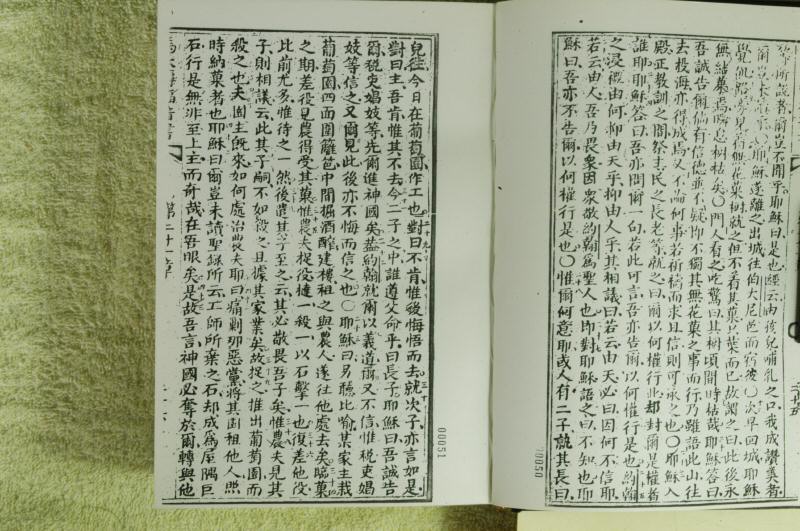 等所說者爾豈不聞乎耶穌曰是也經云由孩兒哺乳之口我成讚美者
爾豈未讀耶穌遂離之出城往伯大尼邑而宿彼○次早回城耶穌
覺飢路旁見有無花菓樹就之但不着其菓只葉而已故謂之曰此後永
無結菓焉瞬息樹枯矣○門人看之吃驚曰其樹頃間時枯哉耶穌答曰
吾誠告爾倘有信德並不疑抑不獨其無花菓之事而行乃雖語此山往
去投海亦得成焉又不論何事若祈禱而求且信則可承之也○耶穌入
殿正教訓之間祭主民之長老等就之曰爾以何權行此却封爾是權者
誰耶耶穌答曰吾亦問爾一句若此可言吾亦告爾以何權行是也約翰
之浸禮由何抑由天乎抑由人乎其相議曰若云由天必曰因何不信耶
若云由人吾乃畏衆因衆敬約翰爲聖人也即對耶穌語之曰不知也耶
穌曰吾亦不告爾以何權行是也○惟爾何意耶或人有二子就其長曰
00050
兒往今日在葡萄園作工也對曰不肯惟後悔悟而去就次子亦言如是
對曰主吾肯惟其不去今二子之中誰遵父命乎曰長子耶穌曰吾誠告
爾稅吏娼妓等先爾進神國矣蓋約翰就爾以義道爾又不信惟稅吏娼
妓等信之又爾見此後亦不悔而信之也○耶穌曰另聽比喻某家主栽
葡萄園四面圍籬笆中間掘酒醡建樓租之與農人遂往他處去矣臨菓
之期差役見農得受其菓惟農夫捉役撻一殺一以石擊一也復差他役
比前尤多惟待之一然後遣其子至之云其必敬畏吾子矣惟農夫見其
子則相議云此其子嗣不如殺之且據其家業矣故捉之推出葡萄園而
殺之也夫園主旣來如何處治農夫耶曰痛剿那惡黨將其園租他人照
時納菓者也耶穌曰爾豈未讀聖錄所云工師所棄之石却成爲屋隅巨
石行是無非至上主而奇哉在吾眼矣是故吾言神國必奪於爾轉與他
第二十一章
00051